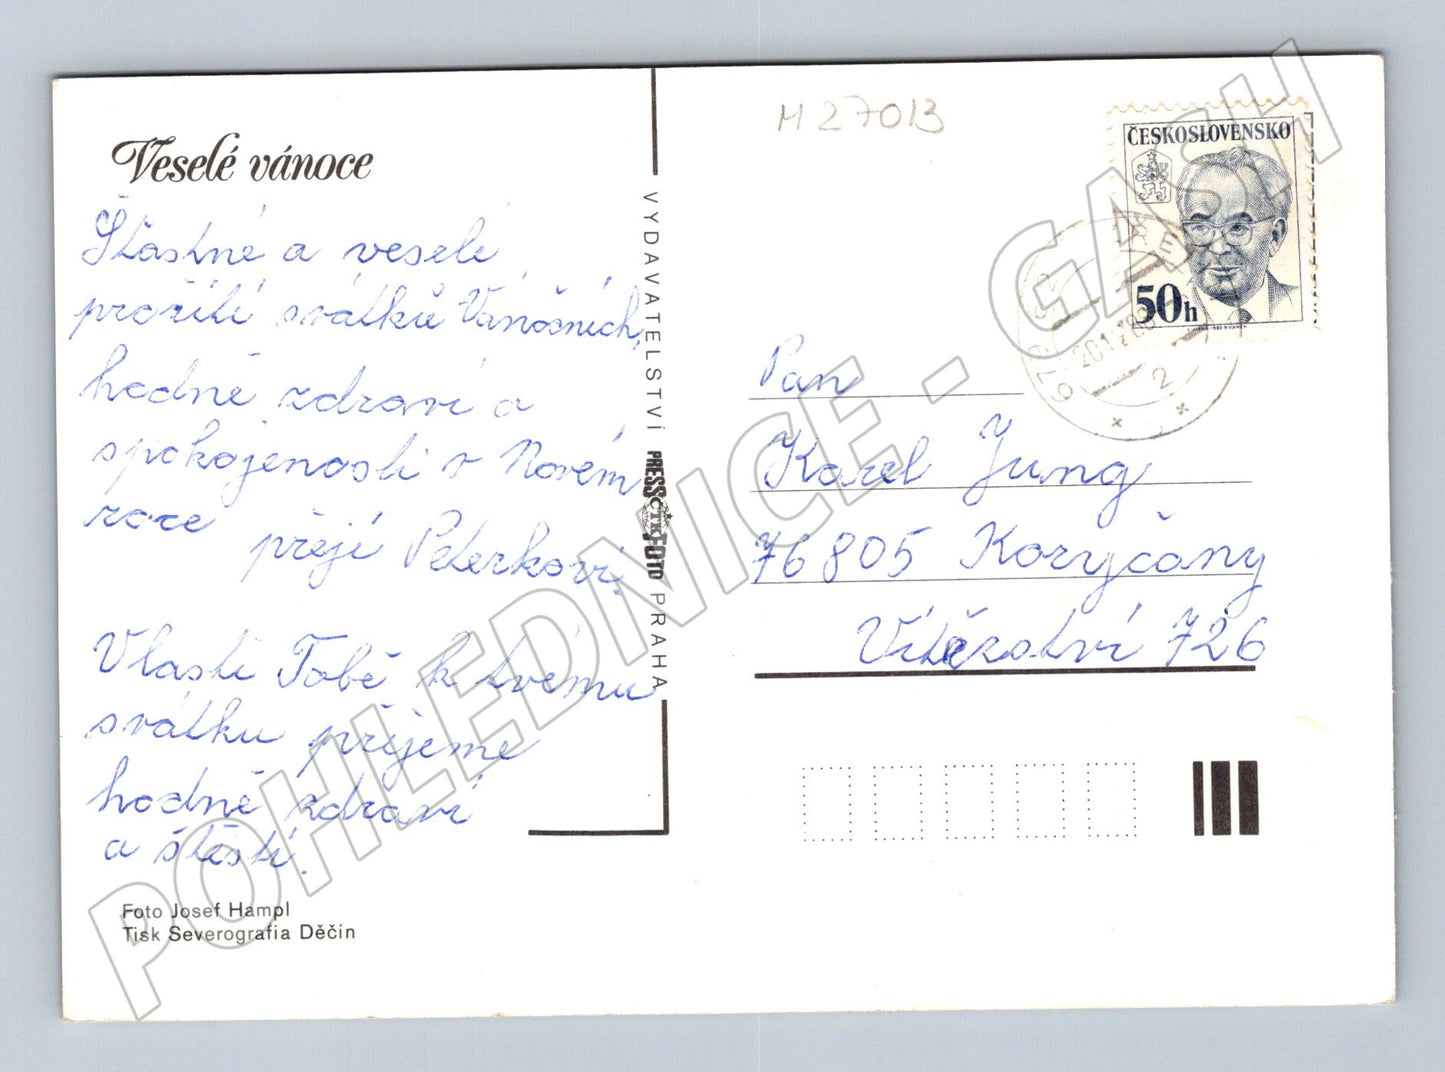 Veselé vánoce
Šťastné a veselé
prožití svátků Vánočních,
hodně zdraví a
spokojenosti v Novém
roce přejí Peterkovi.
Vlasti Tobě k tvému
svátku přejeme
hodně zdraví
a štěstí.
Foto Josef Hampl
Tisk Severografia Děčín
VYDAVATELSTVÍ PRESSFOTO PRAHA
ČTK
M 27013
ČESKOSLOVENSKO
50h
2
Pan
Karel Jung
76805 Koryčany
Vítězství 726
POHLEDNICE - GASH